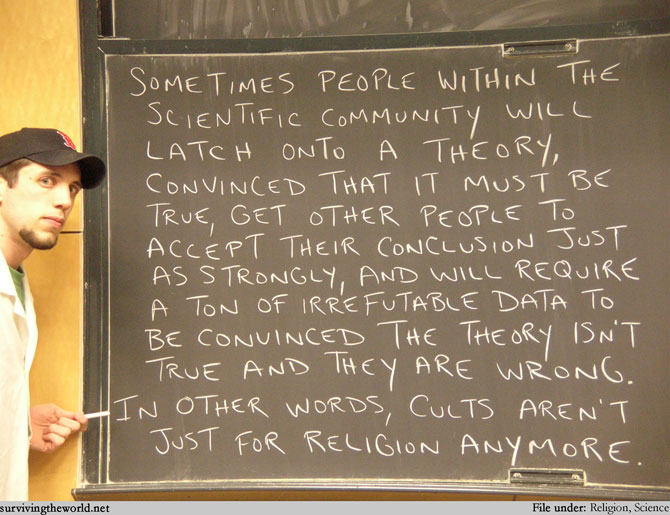 SOMETIMES PEOPLE WITHIN THE
SCIENTIFIC COMMUNITY WILL
LATCH ONTO A THEORY,
CONVINCED THAT IT MUST BE
TRUE, GET OTHER PEOPLE TO
ACCEPT THEIR CONCLUSION JUST
AS STRONGLY, AND WILL REQUIRE
A TON OF IRREFUTABLE DATA TO
BE CONVINCED THE THEORY ISN'T
TRUE AND THEY ARE WRONG.
IN OTHER WORDS, CULTS AREN'T
JUST FOR RELIGION ANYMORE.
survivingtheworld.net File under: Religion, Science